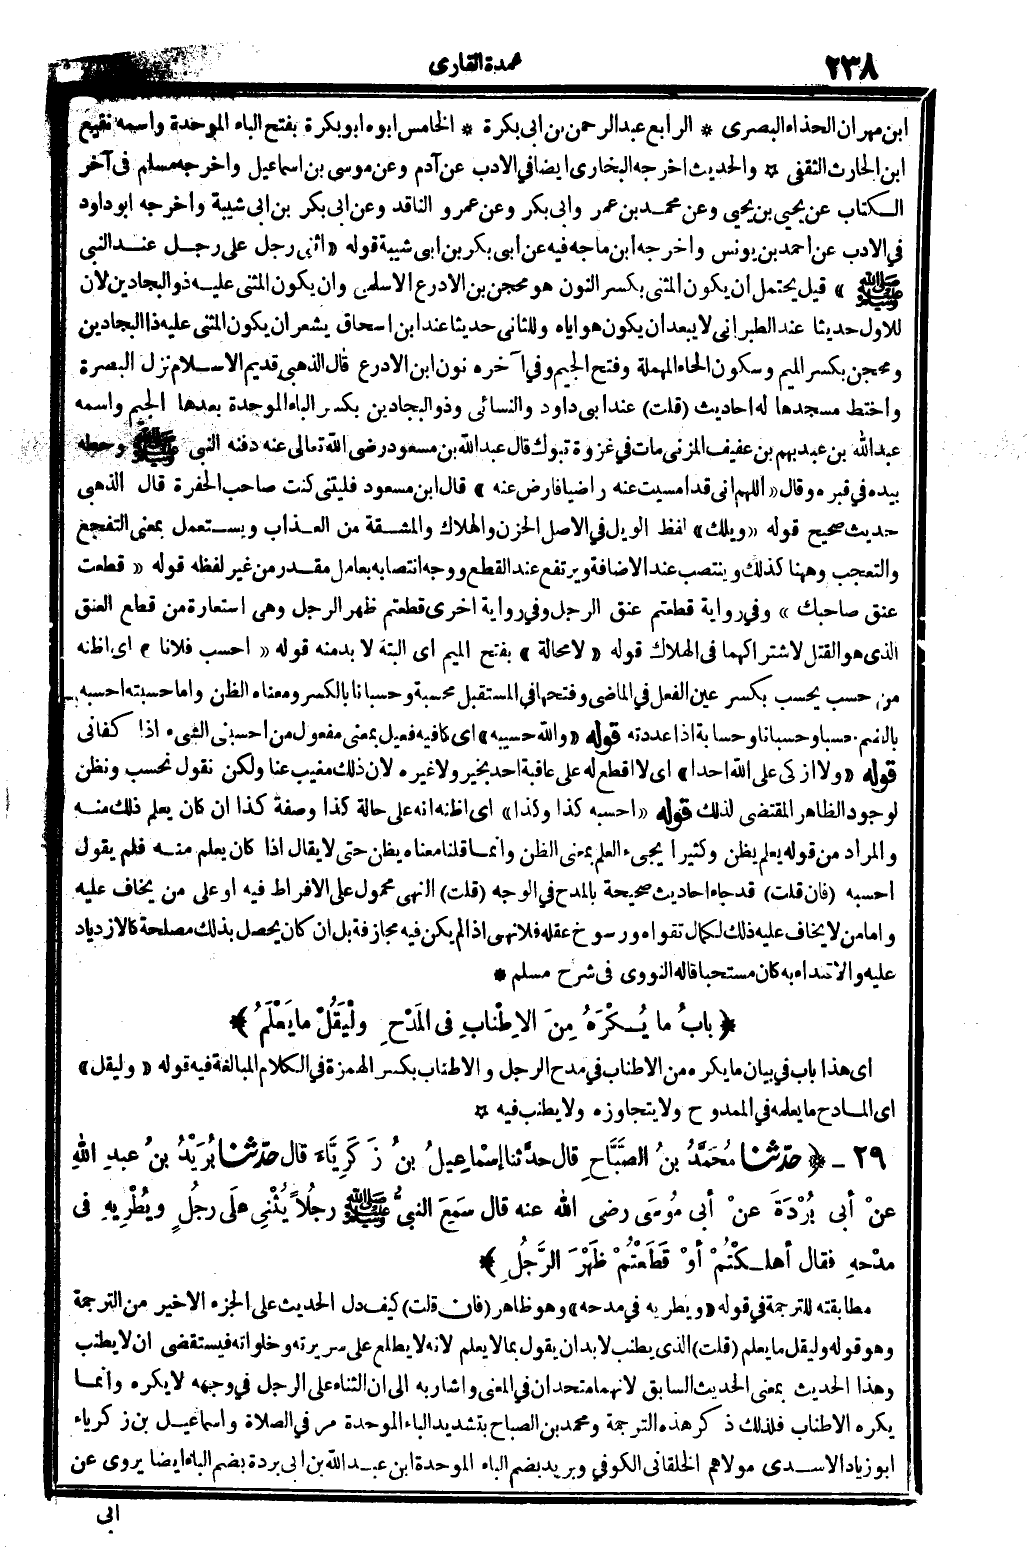 ٢٣٨
عمدة القارى
ابن مهران الحذاء البصرى * الرابع عبد الرحمن بن ابى بكرة * الخامس ابوه ابو بكرة بفتح الباء الموحدة واسمه نفيع
ابن الحارث الثقفى * والحديث اخرجه البخارى ايضا فى الادب عن آدم وعن موسى بن اسماعيل واخرجه مسلم فى آخر
الكتاب عن يحيى بن يحيى وعن محمد بن عمر وابى بكر وعن عمرو الناقد وعن ابى بكر بن ابى شيبة وأخرجه ابو داود
فى الادب عن احمد بن يونس واخرجه ابن ماجه فيه عن أبى بكر بن ابى شيبة قوله « اثنى رجل على رجل عند النبى
ﷺ » قيل يحتمل ان يكون المثنى بكسر النون هو محجن بن الادرع الاسلمى وان يكون المثنى عليه ذو البجادين لان
للاول حديثا عند الطبرانى لا يبعد ان يكون هو اياه وللثانى حديثا عند ابن اسحاق يشعر ان يكون المثنى عليه ذا البجادين
ومحجن بكسر الميم وسكون الحاء المهملة وفتح الجيم وفى آخره نون ابن الادرع قال الذهبى قديم الاسلام نزل البصرة
واختط مسجدها له احاديث (قلت) عند ابى داود والنسائى وذو البجادين بكسر الباء الموحدة بعدها الجيم واسمه
عبد الله بن عبد بهم بن عفيف المزنى مات فى غزوة تبوك قال عبد الله بن مسعود رضى الله تعالى عنه دفنه النبى ﷺ وحطه
بيده فى قبره وقال « اللهم انى قد امسيت عنه راضيا فارض عنه » قال ابن مسعود فليتنى كنت صاحب الحفرة قال الذهبى
حديث صحيح قوله « ويلك » لفظ الويل فى الاصل الحزن والهلاك والمشقة من العذاب ويستعمل بمعنى التفجع
والتعجب وههنا كذلك وينتصب عند الاضافة ويرتفع عند القطع ووجه انتصابه بعامل مقدر من غير لفظه قوله « قطعت
عنق صاحبك » وفى رواية قطعتم عنق الرجل وفى رواية اخرى قطعتم ظهر الرجل وهى استعارة من قطع العنق
الذى هو القتل لاشتراكهما فى الهلاك قوله « لا محالة » بفتح الميم اى البتة لا بد منه قوله « احسب فلانا » اى اظنه
من حسب يحسب بكسر عين الفعل فى الماضى وفتحها فى المستقبل محسبة وحسبانا بالكسر ومعناه الظن واما حسبته احسبه
بالضم حسبا وحسبانا وحسابة اذا عددته قوله « والله حسيبه » اى كافيه فعيل بمعنى مفعول من احسبنى الشىء اذا كفانى
قوله « ولا ازكى على الله احدا » اى لا اقطع له على عاقبة احد بخير ولا غيره لان ذلك مغيب عنا ولكن نقول نحسب ونظن
لوجود الظاهر المقتضى لذلك قوله « احسبه كذا وكذا » اى اظنه انه على حالة كذا وصفة كذا ان كان يعلم ذلك منه
والمراد من قوله يعلم يظن وكثيرا يجىء العلم بمعنى الظن وانما قلنا معناه يظن حتى لا يقال اذا كان يعلم منه فلم يقول
احسبه (فان قلت) قد جاء احاديث صحيحة بالمدح فى الوجه (قلت) النهى محمول على الافراط فيه او على من يخاف عليه
واما من لا يخاف عليه ذلك لكمال تقواه ورسوخ عقله فلا نهى اذا لم يكن فيه مجازفة بل ان كان يحصل بذلك مصلحة كالازدياد
عليه والاقتداء به كان مستحبا قاله النووى فى شرح مسلم *
﴿ بابُ ما يُكْرَهُ مِنَ الاِطْنابِ فى المَدْحِ ولْيَقُلْ ما يَعْلَمُ ﴾
اى هذا باب فى بيان ما يكره من الاطناب فى مدح الرجل والاطناب بكسر الهمزة فى الكلام المبالغة فيه قوله « وليقل »
اى المادح ما يعلمه فى الممدوح ولا يتجاوزه ولا يطنب فيه *
٢٩ - ﴿ حدّثنا مُحَمَّدُ بنُ الصَّبَّاحِ قال حدّثنا إسْماعِيلُ بنُ زَكَرِيَّاءَ قال حدّثنا بُرَيْدُ بنُ عبدِ اللهِ
عنْ أبى بُرْدَةَ عنْ أبى مُوسَى رضى الله عنه قال سَمِعَ النبىُّ ﷺ رجُلاً يُثْنِى علَى رجُلٍ ويُطْرِيهِ فى
مدْحهِ فقال أهلَكْتُمْ أوْ قَطَعْتُمْ ظَهْرَ الرَّجُلِ ﴾
مطابقته للترجمة فى قوله « ويطريه فى مدحه » وهو ظاهر (فان قلت) كيف دل الحديث على الجزء الاخير من الترجمة
وهو قوله وليقل ما يعلم (قلت) الذى يطنب لا بد ان يقول بما لا يعلم لانه لا يطلع على سريرته وخلواته فيستقضى ان لا يطنب
وهذا الحديث بمعنى الحديث السابق لانهما متحدان فى المعنى واشار به الى ان الثناء على الرجل فى وجهه لا يكره وانما
يكره الاطناب فلذلك ذكر هذه الترجمة ومحمد بن الصباح بتشديد الباء الموحدة مر فى الصلاة واسماعيل بن زكرياء
ابو زياد الاسدى مولاهم الخلقانى الكوفى وبريد بضم الباء الموحدة ابن عبد الله بن ابى بردة بضم الباء ايضا يروى عن
ابى